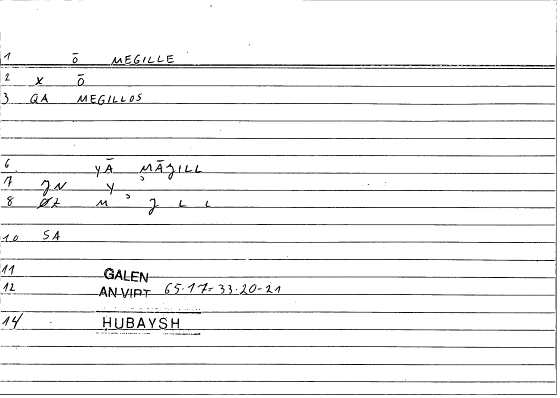 1 ō MEGILLE
2 x ō
3 QA MEGILLOS
6 yĀ MĀJILL
7 JN y ʾ
8 ØZ M ʾ J L L
10 SA
11 GALEN
12 AN VIRT 65·17-33·20-21
14 HUBAYSH